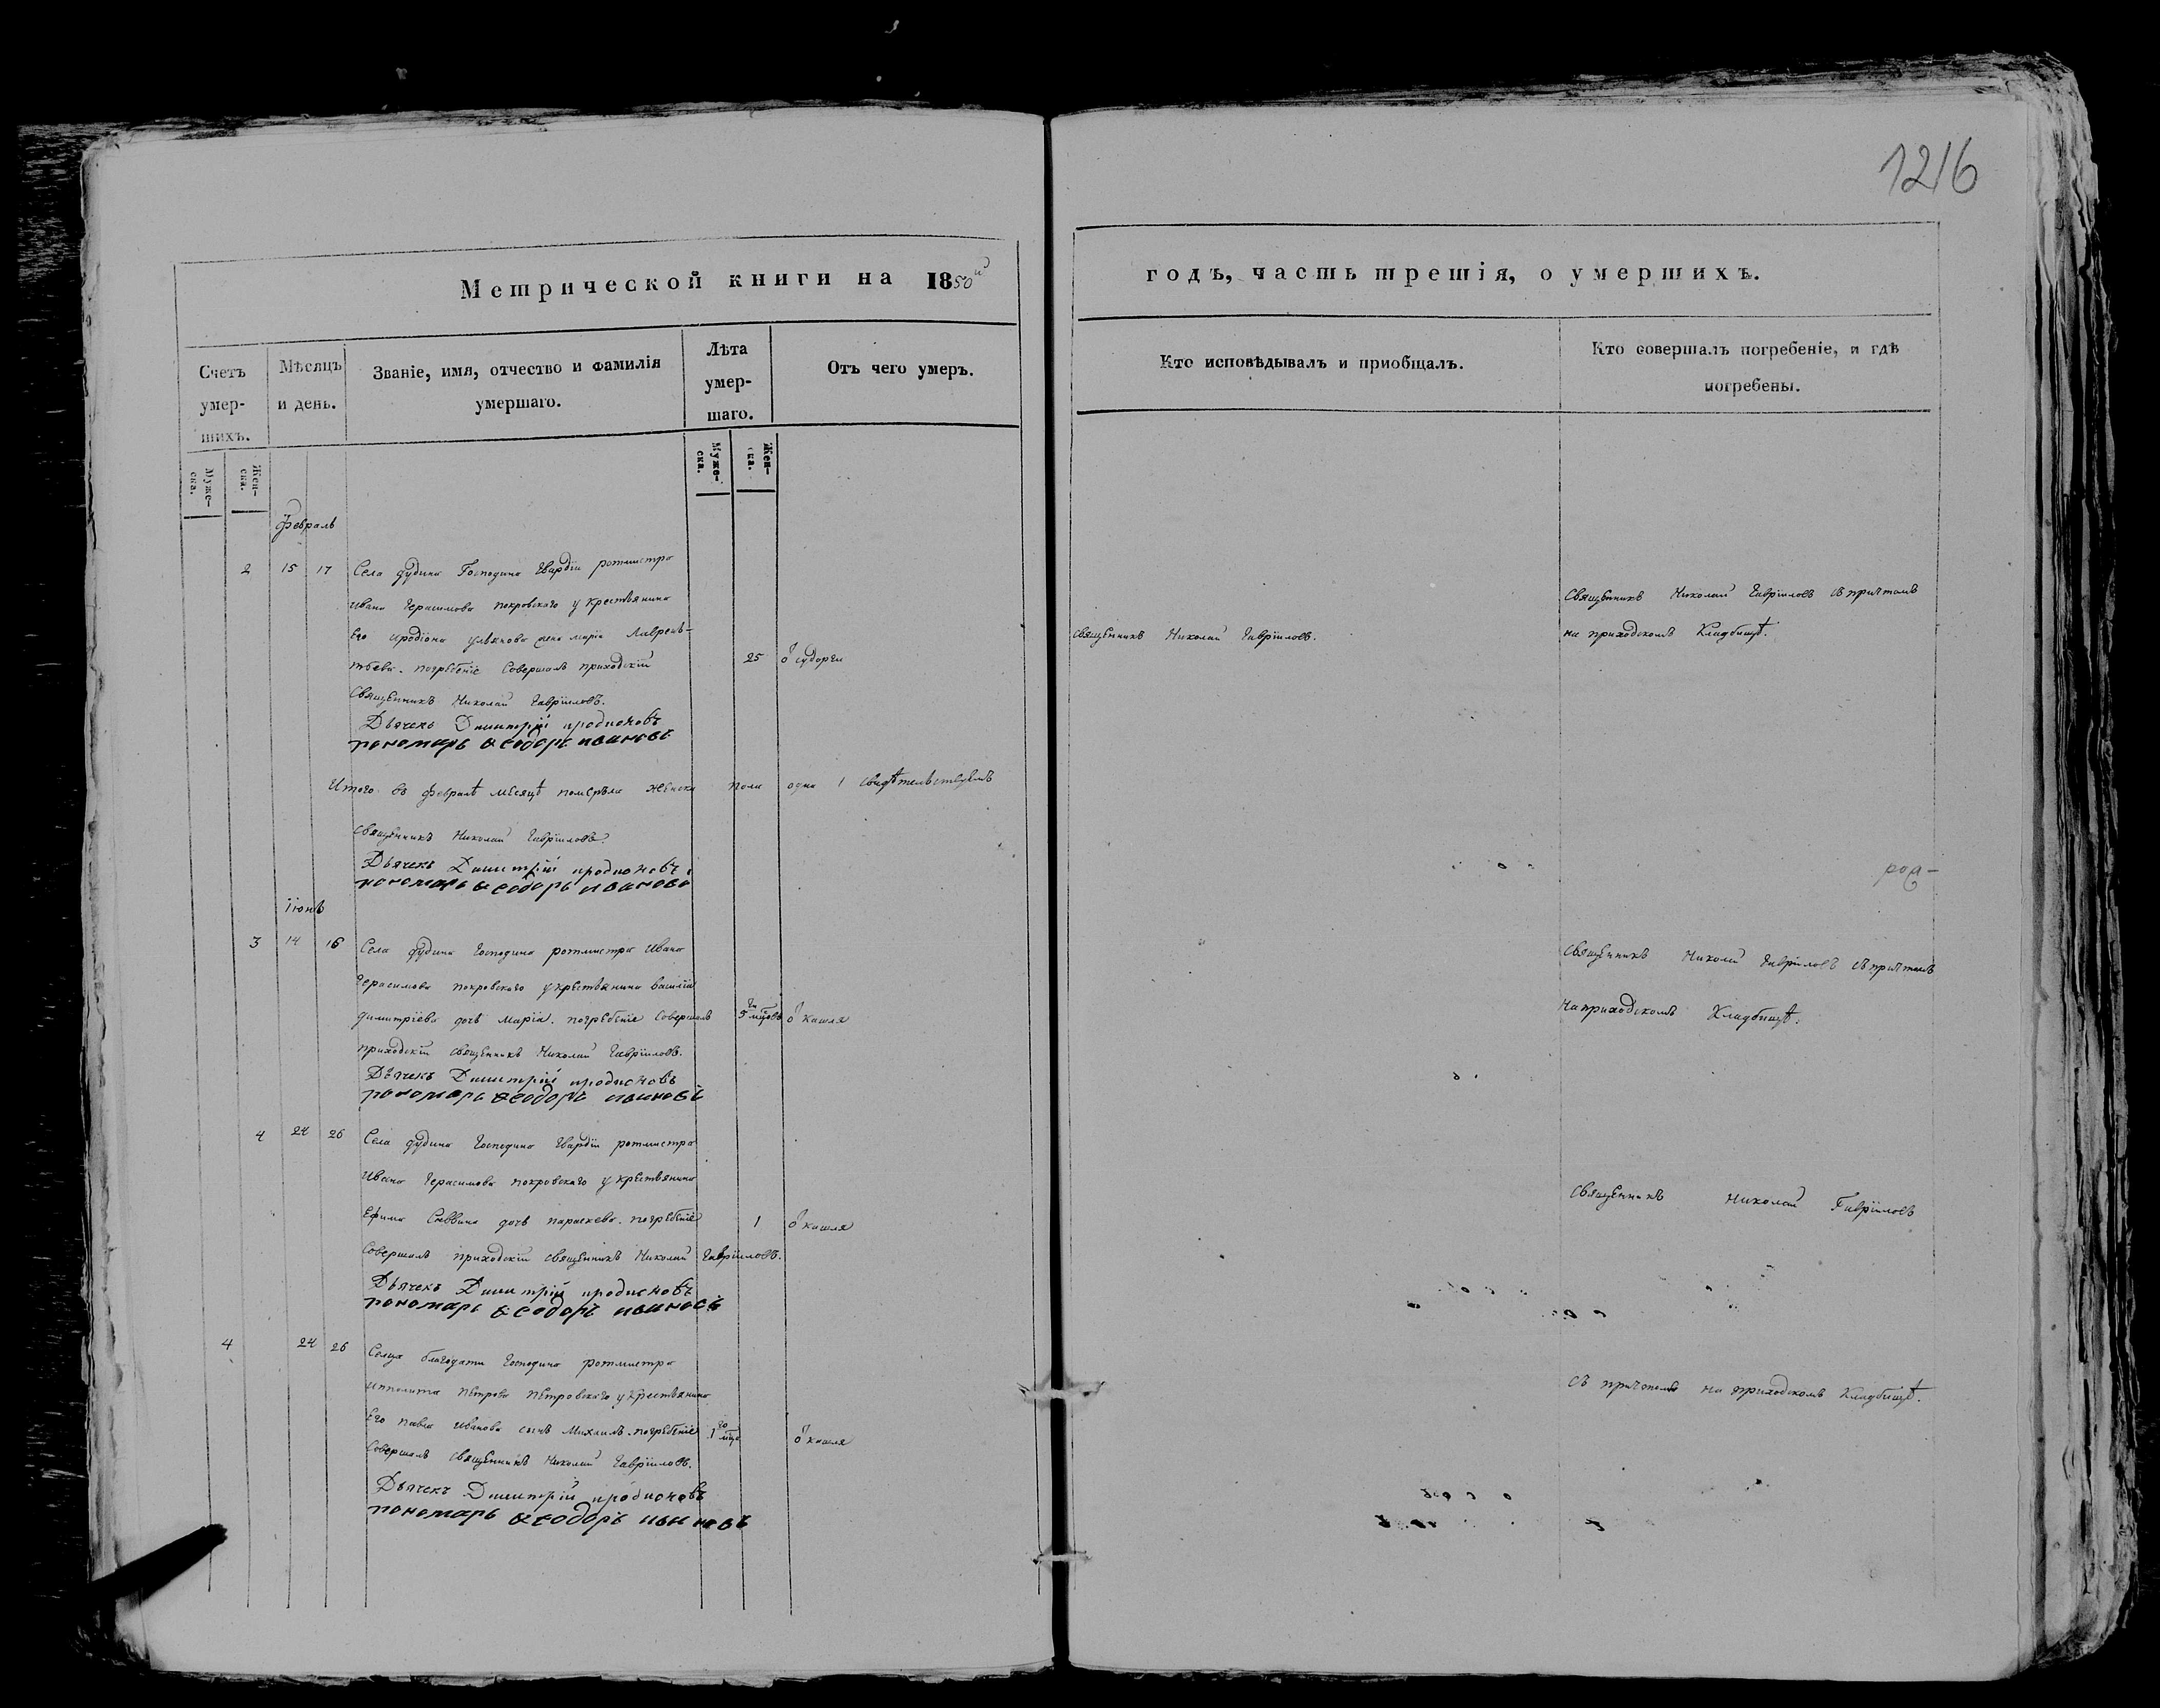 1216
Метрической книги на 1850й
годъ, часть третія, о умершихъ.
Счетъ умер-шихъ.
Мѣсяцъ и день.
Званіе, имя, отчество и фамилія умершаго.
Лѣта умер-шаго.
Отъ чего умеръ.
Кто исповѣдывалъ и пріобщалъ.
Кто совершалъ погребеніе, и гдѣ погребены.
Муже-ска.
Жен-ска.
Муже-ска.
Жен-ска.
Февраль
2 15 17 Села Дудина Господина Гвардіи ротмистра
Ивана Герасимова Покровскаго у крестьянина
Его Иродіона жена Марія Лаврень-
тьева. погребеніе Совершалъ приходскій
25 о судорги
Священникъ Николай Гавріиловъ.
Дьячекъ Димитрій Иродионовъ
пономарь Ѳеодоръ Ивановъ
Священникъ Николай Гавріиловъ.
Священникъ Николай Гавріиловъ съ причтомъ
на приходскомъ Кладбищѣ.
Итого въ февралѣ месяцѣ померѣла женска пола одна 1 свидѣтельствуемъ
Священникъ Николай Гавріиловъ.
Дьячекъ Димитрій Иродионовъ
пономарь Ѳеодоръ Ивановъ
Іюнь
3 14 16 Села Дудина Господина ротмистра Ивана
Герасимова Покровскаго у крестьянина Василія
Димитріева дочь Марія. погребеніе Совершалъ
5 мцовъ о кашля
приходскій священникъ Николай Гавріиловъ.
Дьячекъ Димитрій Иродионовъ
пономарь Ѳеодоръ Ивановъ
Священникъ Николай Гавріиловъ съ причтомъ
на приходскомъ Кладбищѣ.
4 24 26 Села Дудина Господина Гвардіи ротмистра
Ивана Герасимова Покровскаго у крестьянина
Ефима Саввина дочь Параскева. погребеніе
1 о кашля
Совершалъ приходскій священникъ Николай Гавріиловъ.
Дьячекъ Димитрій Иродионовъ
пономарь Ѳеодоръ Ивановъ
Священникъ Николай Гавріиловъ
4 24 26 Сельца Благодати Господина ротмистра
Ипполита Петрова Петровскаго у крестьянина
Его Павла Иванова сынъ Михаилъ. погребеніе
1го мца о кашля
Совершалъ священникъ Николай Гавріиловъ.
Дьячекъ Димитрій Иродионовъ
пономарь Ѳеодоръ Ивановъ
съ причтомъ на приходскомъ Кладбищѣ.